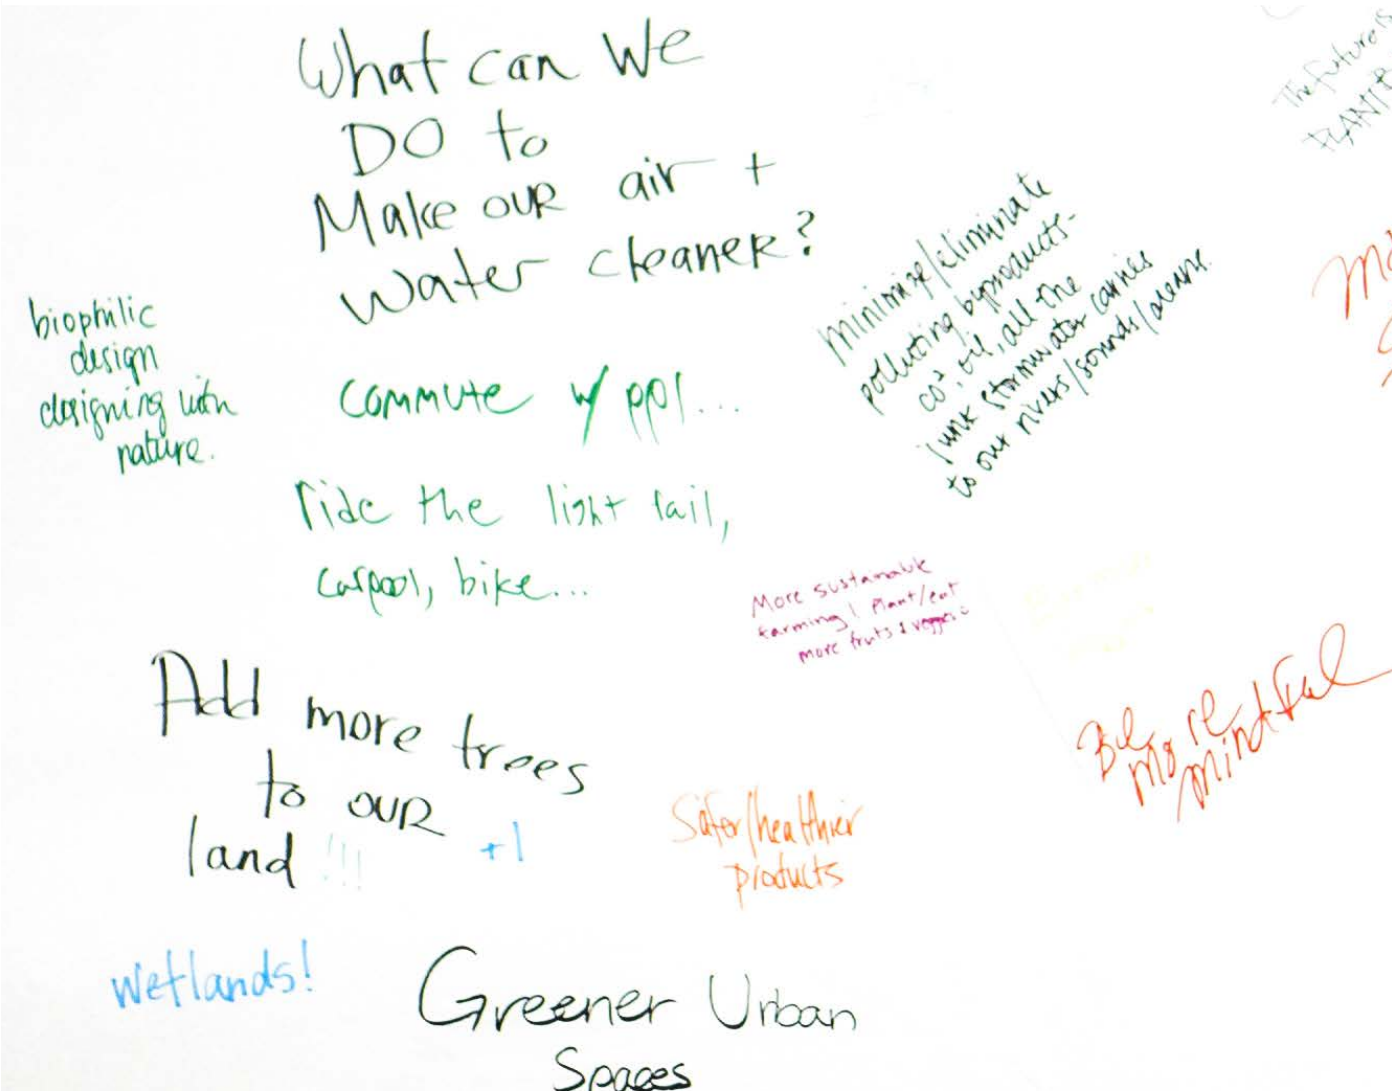 What can We
DO to
Make OUR air +
water cleaner?
biophilic
design
designing with
nature.
commute w/ ppl...
ride the light rail,
carpool, bike...
minimize/eliminate
polluting byproducts-
co², oil, all the
junk stormwater carries
to our rivers/sounds/oceans.
The future is
PLANT B
More sustainable
farming! Plant/eat
more fruts & veggies
Be
more
mindful
Add more trees
to OUR
land !!!
+1
Safer/healthier
products
wetlands!
Greener Urban
Spaces